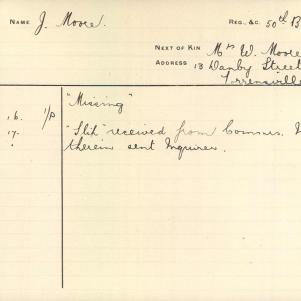 NAME J. Moore. REG., &C. 50th B
NEXT OF KIN Mrs W. Moore
ADDRESS 13 Danby Street
Torrensville
"Missing"
16. 1/P "Slip" received from Commrs.
17. therein sent Inquirer.